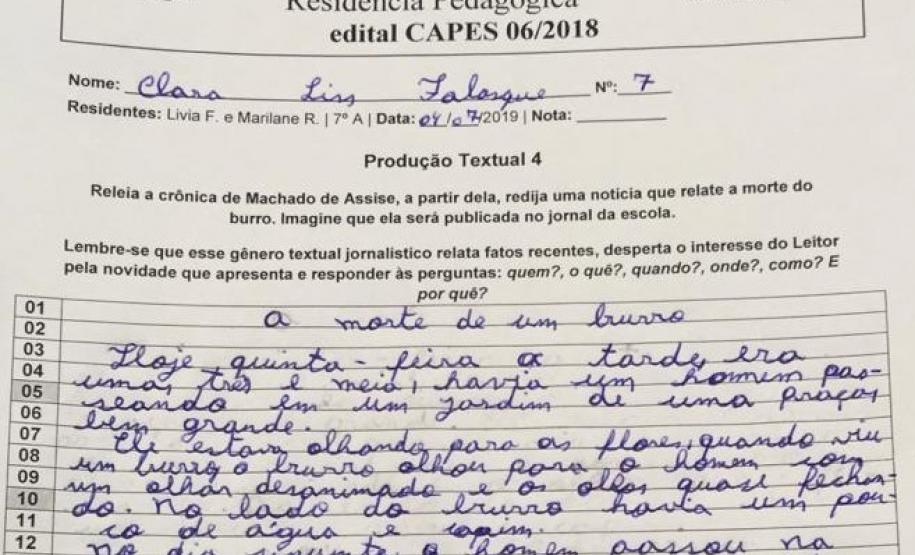 Residência Pedagógica
edital CAPES 06/2018
Nome: Clara Liss Falasque Nº: 7
Residentes: Livia F. e Marilane R. | 7º A | Data: 04/07/2019 | Nota:
Produção Textual 4
Releia a crônica de Machado de Assise, a partir dela, redija uma noticia que relate a morte do
burro. Imagine que ela será publicada no jornal da escola.
Lembre-se que esse gênero textual jornalistico relata fatos recentes, desperta o interesse do Leitor
pela novidade que apresenta e responder às perguntas: quem?, o quê?, quando?, onde?, como? E
por quê?
01 a morte de um burro
02
03 Hoje quinta-feira a tarde, era
04 umas três e meia, havia um homem pas-
05 seando em um jardim de uma praça,
06 bem grande.
07 Ele estava olhando para as flores, quando viu
08 um burro o burro olhou para o homem com
09 um olhar desanimado e os olhos quase fechan-
10 do. No lado do burro havia um pou-
11 co de água e capim.
12 No dia o homem passou na